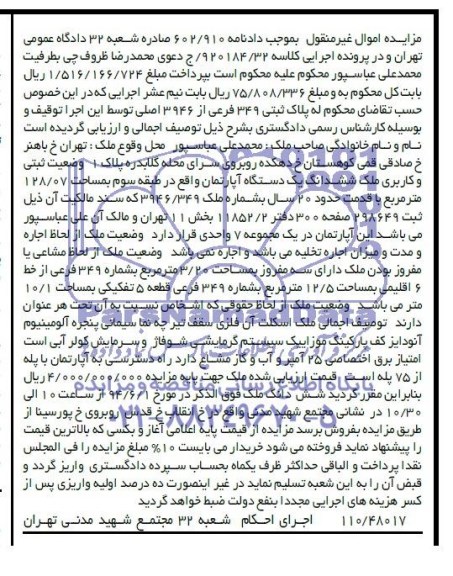 مزایـده اموال غیرمنقول بموجب دادنامه ۶۰۲/۹۱۰ صادره شعبه ۳۲ دادگاه عمومی
تهران و در پرونده اجرایی کلاسه ۹۲۰۱۸۴/۳۲/ج دعوی محمدرضا ظروف چی بطرفیت
محمدعلی عباسـپور محکوم علیه محکوم است بپرداخت مبلغ ۱/۵۱۶/۱۶۶/۷۲۴ ریال
بابت کل محکوم به و مبلغ ۷۵/۸۰۸/۳۳۶ ریال بابت نیم عشر اجرایی که در این خصوص
حسب تقاضای محکوم له پلاک ثبتی ۳۴۹ فرعی از ۳۹۴۶ اصلی توسط این اجرا توقیف و
بوسیله کارشناس رسمی دادگستری بشرح ذیل توصیف اجمالی و ارزیابی گردیده است
نـام و نـام خانوادگی صاحب ملک : محمدعلی عباسـپور محل وقوع ملک : تهران خ باهنر
خ صادقی قمی کوهسـتان خ دهکده روبروی سـرای محله کاشانک پلاک ۱ وضعیت ثبتی
و کاربری ملک ششـدانگ یک دستـگاه آپارتمان واقع در طبقه سوم بمساحت ۱۲۸/۰۷
مترمربع با قدمت حدود ۲۰ سـال بشـماره ملک ۳۹۴۶/۳۴۹ که سـند مالکیت آن ذیل
ثبت ۲۹۸۶۴۹ صفحه ۳۰۰ دفتر ۱۱۸۵۲/۲ بخش ۱۱ تهران و مالک آن علی عباسـپور
می باشـد این آپارتمان در یک مجموعه ۷ واحدی قرار دارد وضعیت ملک از لحاظ اجاره
و مدت و میزان اجاره تخلیه می باشد و اجاره نمی باشد وضعیت ملک از لحاظ مشاعی یا
مفروز بودن ملک دارای سـه مفروز بمساحت ۳/۲۰ مترمربع بشماره ۳۴۹ فرعی از خط
۶ اقلیمی بمساحت ۱۲/۵ مترمربع بشماره ۳۴۹ فرعی قطعه ۵ تفکیکی بمساحت ۱۰/۱
متر می باشـد وضعیت ملک از لحاظ حقوقی که اشـخاص نسـبت به آن تحت هر عنوان
دارند توصیف اجمالی ملک اسکلت آن فلزی سقف تیر چه نما سیمانی پنجره آلومینیوم
آنودایز کف پارکینگ موزاییک سیسـتم گرمایشـی شـوفاژ و سـرمایش کولر آبی است
امتیاز برق اختصاصی ۲۵ آمپر و آب و گاز مشـاع دارد راه دسترسـی به آپارتمان با پله
از ۷۵ پله اسـت قیمت ارزیابی شده ملک جهت پایه مزایده ۴/۰۰۰/۰۰۰/۰۰۰ ریال
بنابراین مقرر گردید شـش دانگ ملک فوق الذکر در مورخ ۹۴/۶/۱ از سـاعت ۱۰ الی
۱۰/۳۰ در نشانی مجتمع شهید مدنی واقع در خ انقلاب خ قدس روبروی خ پورسینا از
طریق مزایده بفروش برسد مزایده از قیمت پایه اعلامی آغاز و بکسی که بالاترین قیمت
را پیشنهاد نماید فروخته می شود خریدار می بایست ۱۰% مبلغ مزایده را فی المجلس
نقدا پرداخت و الباقی حداکثر ظرف یکماه بحساب سـپرده دادگستـری واریز گردد و
قبض آن را به این شعبه تسلیم نماید در غیر اینصورت ده درصد اولیه واریزی پس از
کسر هزینه های اجرایی مجددا بنفع دولت ضبط خواهد گردید
۱۱۰/۴۸۰۱۷ اجـرای احـکام شـعبه ۳۲ مجتمـع شـهید مدنـی تهـران
ParsNamadData
پایگاه اطلاع رسانی مناقصه و مزایده
۰۲۱-۸۸۳۴۹۶۷۰-۵